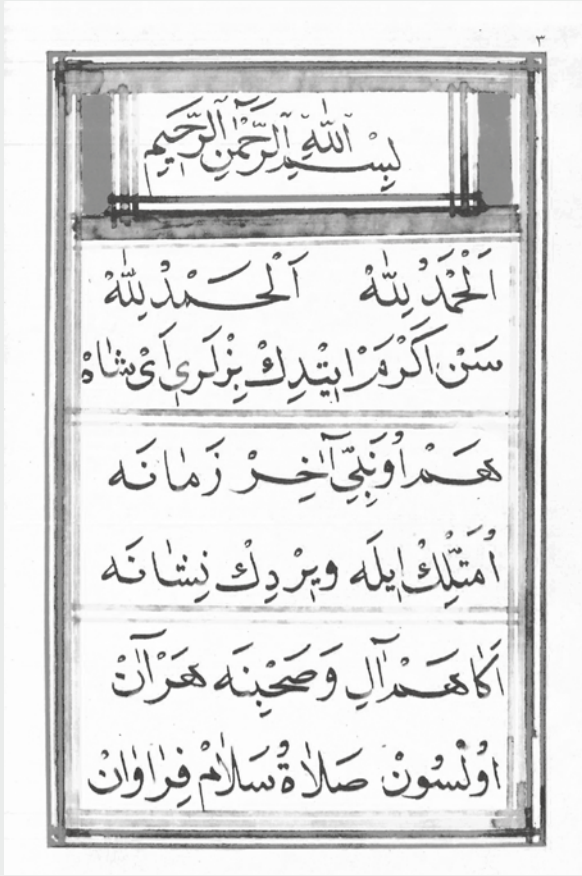 ٣
بِسْمِ اللّٰهِ الرَّحْمٰنِ الرَّحِيمِ
اَلْحَمْدُ لِلّٰهْ اَلْحَمْدُ لِلّٰهْ
سَنْ اَكْرَمْ اِيتْدِكْ بِزْلَرِى اَىْ شَاهْ
هَمْ اُو نَبِىِّ اٰخِرْ زَمَانَه
اُمَّتْلِكْ اِيلَه وِيرْدِكْ نِشَانَه
اَكَا هَمْ اٰلِ وَصَحْبِنَه هَرْ اٰنْ
اُولْسُونْ صَلَاةُ سَلَامْ فِرَاوَانْ